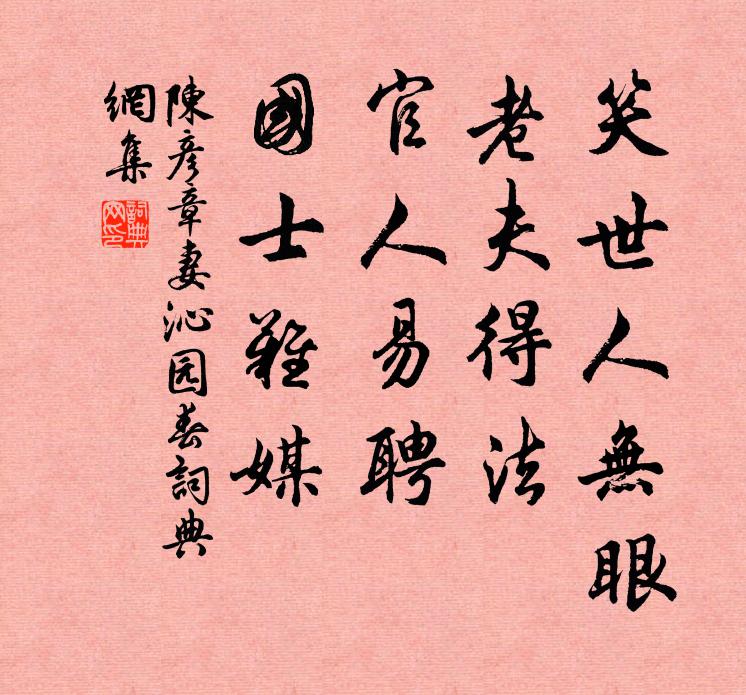 笑世人無眼
老夫得法
官人易聘
國士難媒
陳彥章妻沁园春詞典
網集
詞典
网印